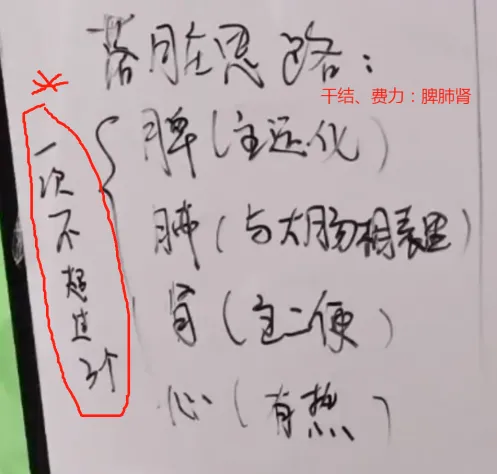 落脏思路：
干结、费力：脾肺肾
脾（主运化）
肺（与大肠相表里）
肾（主二便）
心（有热）
一次不超过3个